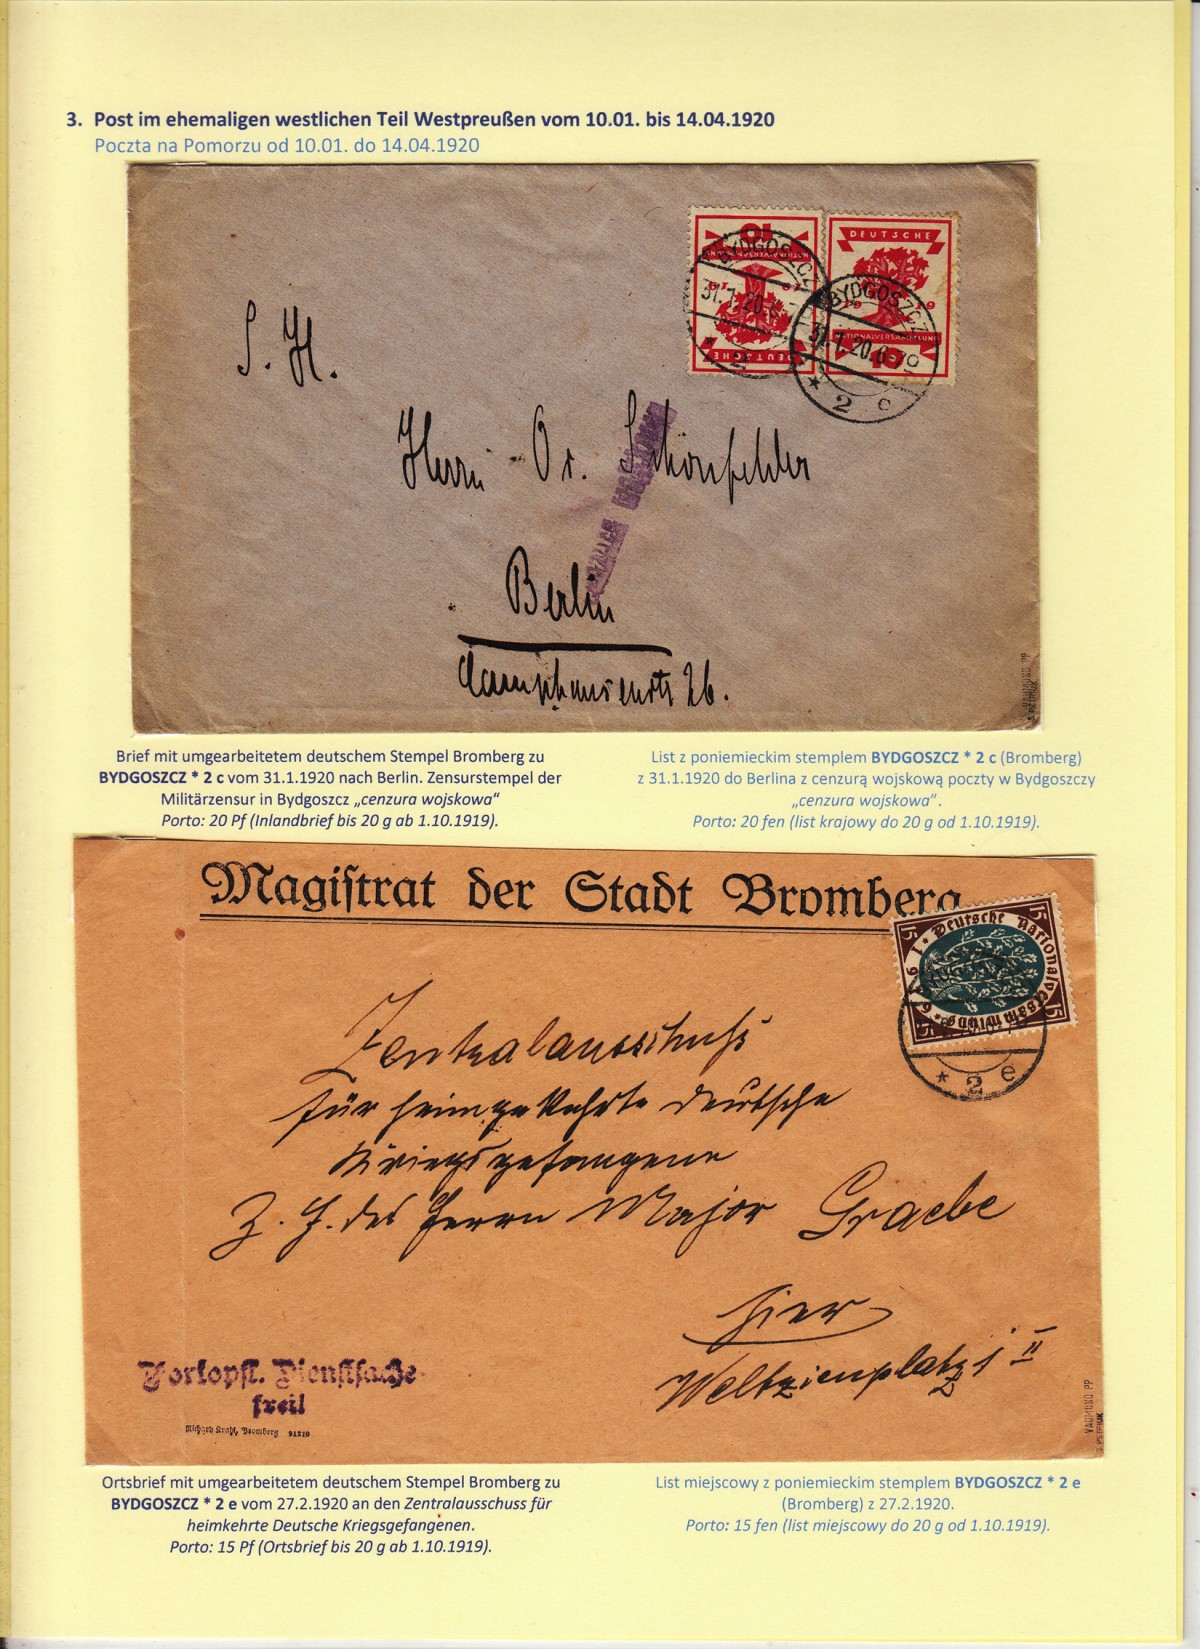 3. Post im ehemaligen westlichen Teil Westpreußen vom 10.01. bis 14.04.1920
Poczta na Pomorzu od 10.01. do 14.04.1920
10
NATIONALVERSAMMLUNG
1919
DEUTSCHE
DEUTSCHE
1919
NATIONALVERSAMMLUNG
10
BYDGOSZCZ
31.1.20.6-7
* 2
BYDGOSZCZ
31.1.20.6-7
* 2 c
S. H.
Herrn Dr. Schönfelder
Berlin
Camphausenstr 26.
VAUMUND PP
S. PETRIUK
Brief mit umgearbeitetem deutschem Stempel Bromberg zu
BYDGOSZCZ * 2 c vom 31.1.1920 nach Berlin. Zensurstempel der
Militärzensur in Bydgoszcz „cenzura wojskowa“
Porto: 20 Pf (Inlandbrief bis 20 g ab 1.10.1919).
List z poniemieckim stemplem BYDGOSZCZ * 2 c (Bromberg)
z 31.1.1920 do Berlina z cenzurą wojskową poczty w Bydgoszczy
„cenzura wojskowa”.
Porto: 20 fen (list krajowy do 20 g od 1.10.1919).
Magistrat der Stadt Bromberg
15 Deutsche Nationalversammlung 1919 15
* 2 e
Zentralausschuss
für heimgekehrte deutsche
Kriegsgefangene
z. H. des Herrn Major Graebe
hier
Weltzienplatz 1 II
Portopfl. Dienstsache
freil
Richard Krahl, Bromberg 91219
VAUMUND PP
S. PETRIUK
Ortsbrief mit umgearbeitetem deutschem Stempel Bromberg zu
BYDGOSZCZ * 2 e vom 27.2.1920 an den Zentralausschuss für
heimkehrte Deutsche Kriegsgefangenen.
Porto: 15 Pf (Ortsbrief bis 20 g ab 1.10.1919).
List miejscowy z poniemieckim stemplem BYDGOSZCZ * 2 e
(Bromberg) z 27.2.1920.
Porto: 15 fen (list miejscowy do 20 g od 1.10.1919).